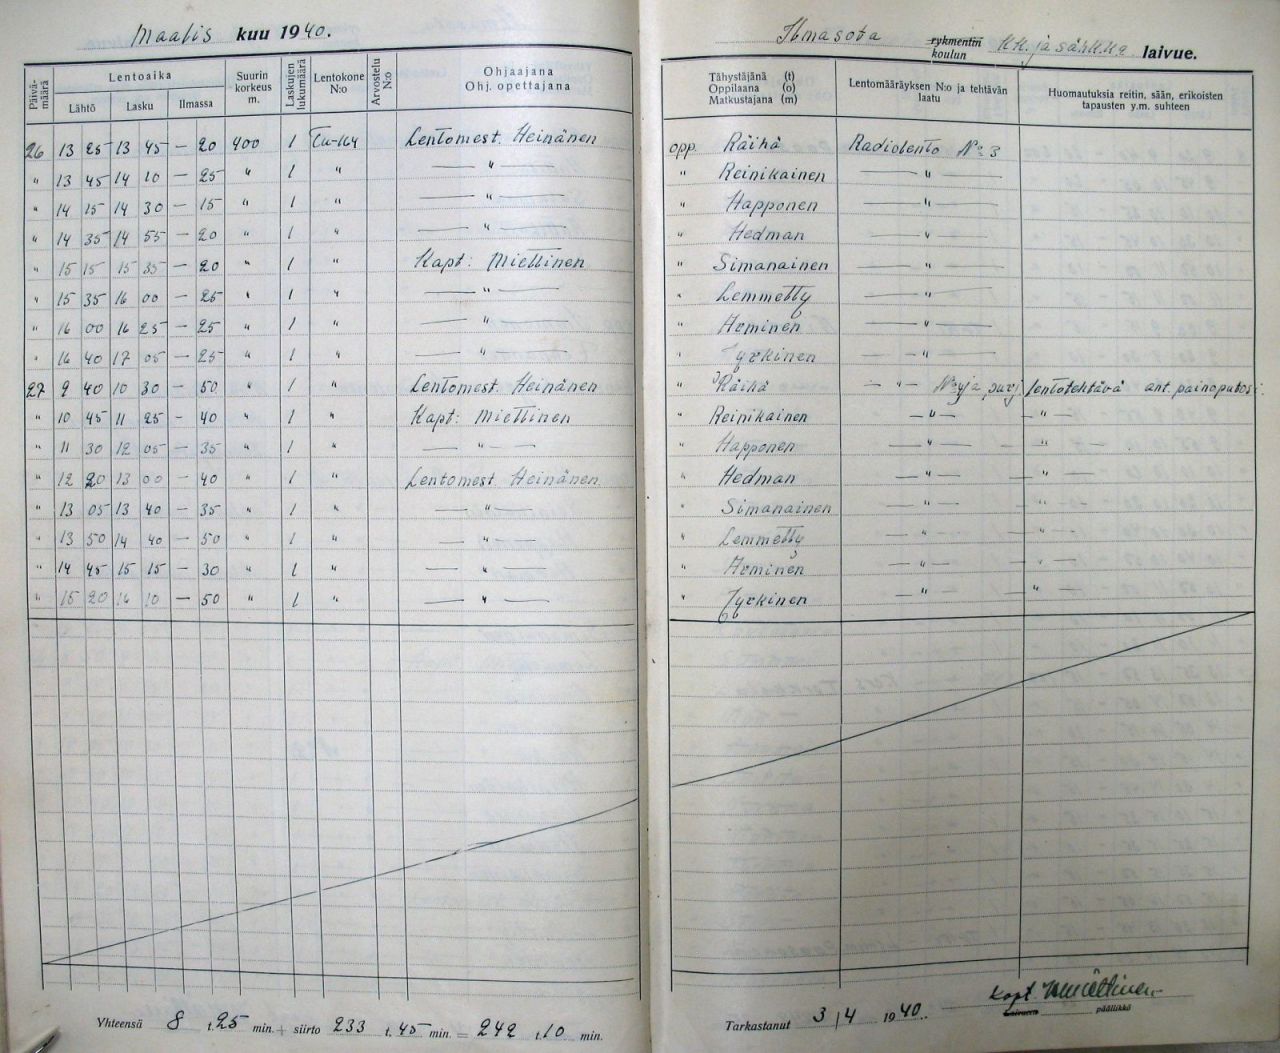 Maalis kuu 1940.
Päivä-määrä Lentoaika Lähtö Lasku Ilmassa Suurin korkeus m. Laskujen lukumäärä Lentokone N:o Arvostelu N:o Ohjaajana Ohj. opettajana
26 13 25 13 45 — 20 400 1 Tu-164 Lentomest. Heinänen
" 13 45 14 10 — 25 " 1 " — " —
" 14 15 14 30 — 15 " 1 " — " —
" 14 35 14 55 — 20 " 1 " — " —
" 15 15 15 35 — 20 " 1 " Kapt: Miettinen
" 15 35 16 00 — 25 " 1 " — " —
" 16 00 16 25 — 25 " 1 " — " —
" 16 40 17 05 — 25 " 1 " — " —
27 9 40 10 30 — 50 " 1 " Lentomest. Heinänen
" 10 45 11 25 - 40 " 1 " Kapt: Miettinen
" 11 30 12 05 — 35 " 1 " — " —
" 12 20 13 00 — 40 " 1 " Lentomest. Heinänen
" 13 05 13 40 — 35 " 1 " — " —
" 13 50 14 40 — 50 " 1 " — " —
" 14 45 15 15 — 30 " 1 " — " —
" 15 20 16 10 — 50 " 1 " — " —
Yhteensä 8 t. 25 min. + siirto 233 t. 45 min. = 242 t. 10 min.
Ilmasota rykmentin koulun KK. ja sähkk. laivue.
Tähystäjänä (t) Oppilaana (o) Matkustajana (m) Lentomääräyksen N:o ja tehtävän laatu Huomautuksia reitin, sään, erikoisten tapausten y.m. suhteen
opp. Räihä Radiolento No 3
" Reinikainen — " —
" Happonen — " —
" Hedman — " —
" Simanainen — " —
" Lemmetty — " —
" Arminen — " —
" Jyrkinen — " —
" Räihä — " — lentotehtävä ant. painoputosi
" Reinikainen — " — — " —
" Happonen — " — — " —
" Hedman — " — — " —
" Simanainen — " — — " —
" Lemmetty — " — — " —
" Arminen — " — — " —
" Jyrkinen — " — — " —
Tarkastanut 3/4 1940. Kapt. Miettinen
Laivueen päällikkö